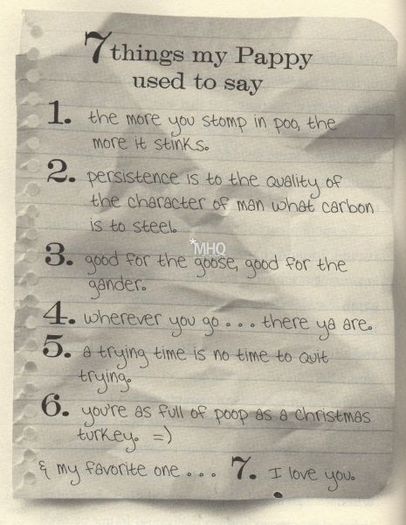 7 things my Pappy
used to say
1. the more you stomp in poo, the
more it stinks.
2. persistence is to the quality of
the character of man what carbon
is to steel.
*MHQ
3. good for the goose, good for the
gander.
4. wherever you go . . . there ya are.
5. a trying time is no time to quit
trying.
6. you're as full of poop as a christmas
turkey. =)
& my favorite one . . . 7. I love you.